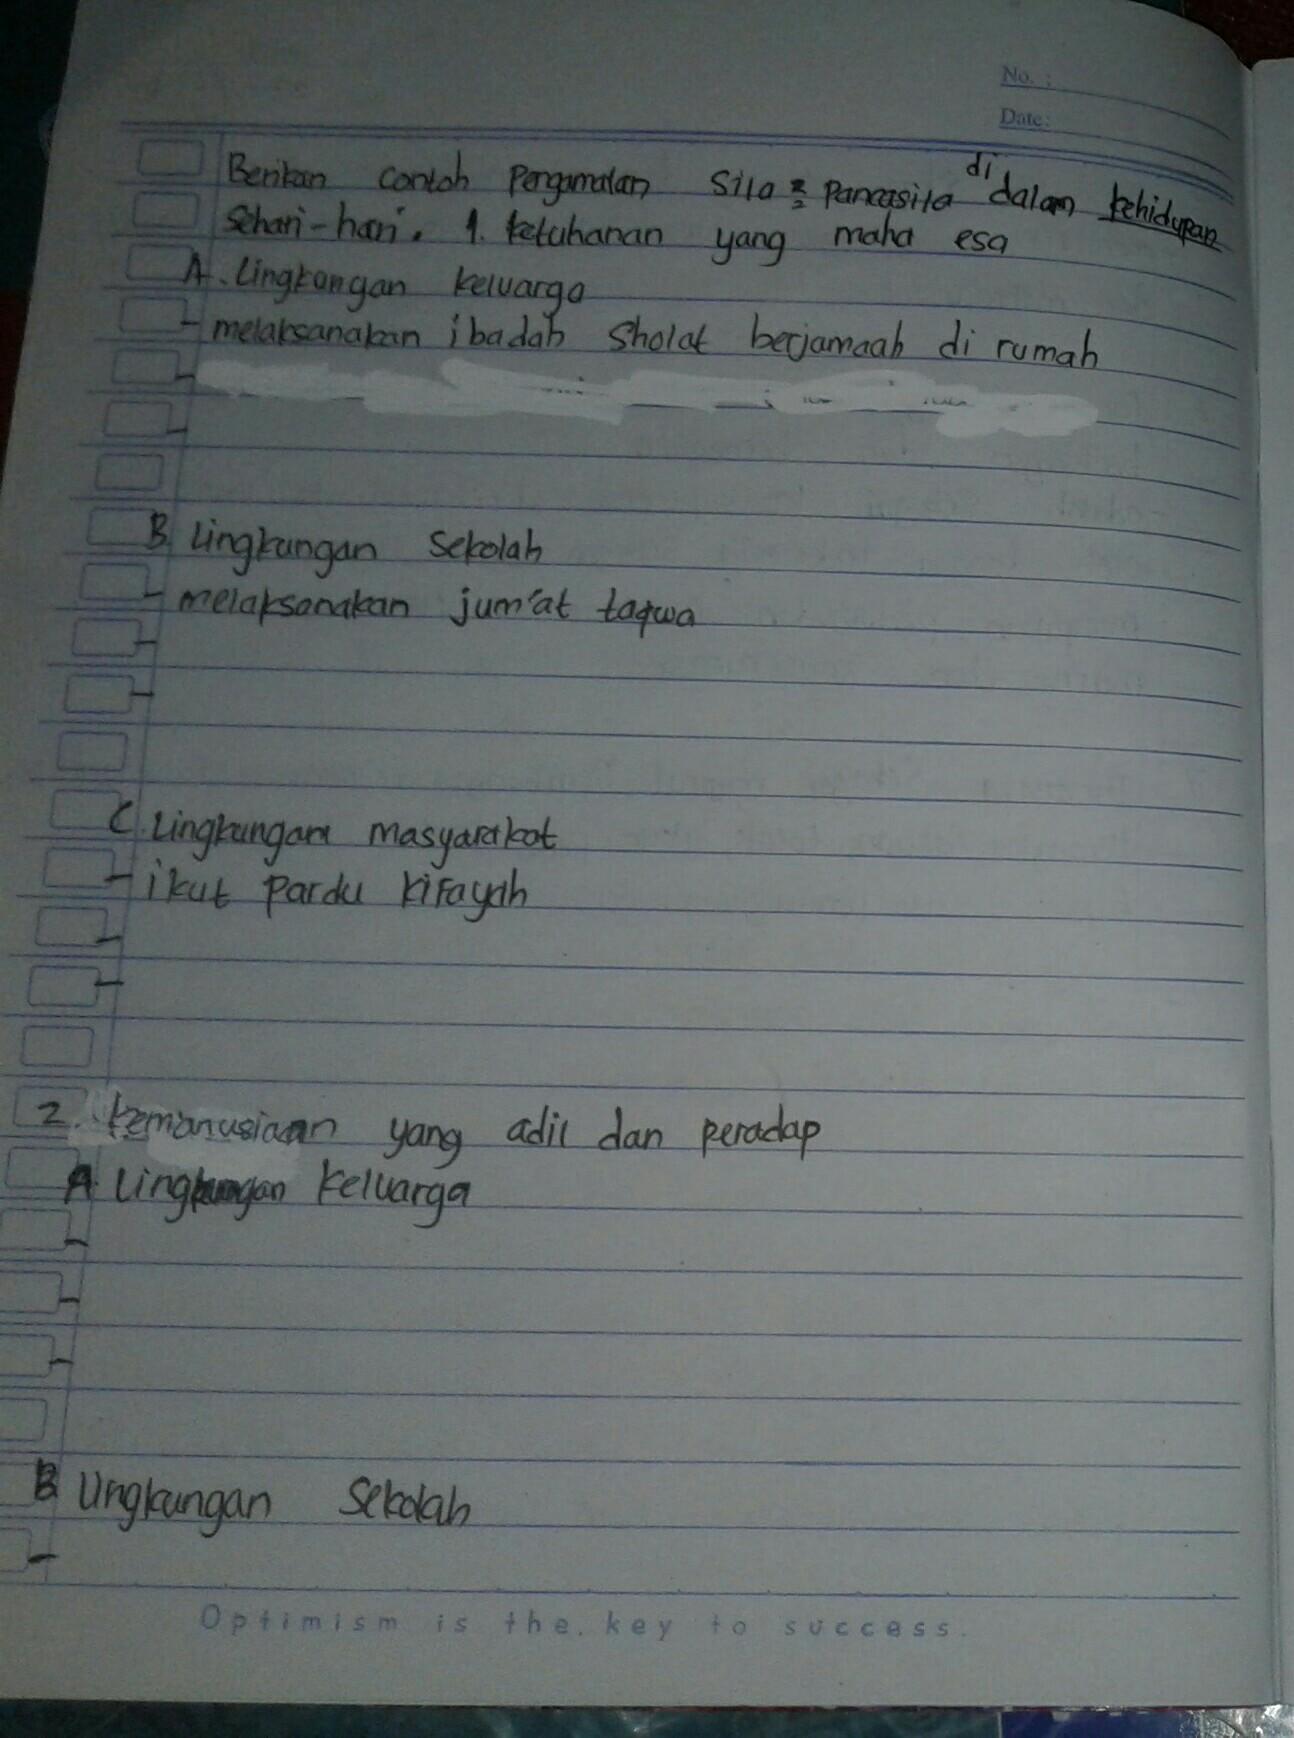 No. :
Date:
Berikan contoh Pengamalan Sila2 Pancasila di dalam kehidupan
Sehari-hari. 1. ketuhanan yang maha esa
A. Lingkongan keluarga
- melaksanakan ibadah Sholat berjamaah di rumah
-
-
B Lingkungan Sekolah
- melaksanakan jum'at taqwa
-
-
C. Lingkungan masyarakat
- ikut Pardu kifayah
-
-
2. kemanusiaan yang adil dan peradap
A Lingkungan keluarga
-
-
-
B Lingkungan Sekolah
-
Optimism is the key to success.